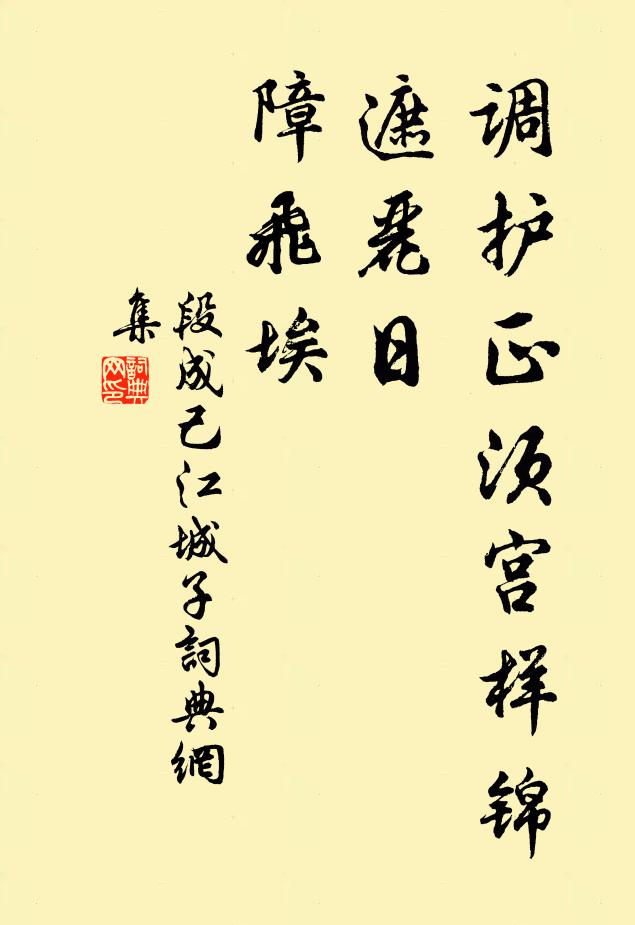 调护正须宫样锦
遮麗日
障飛埃
段成己江城子詞典網
集
詞典
网印